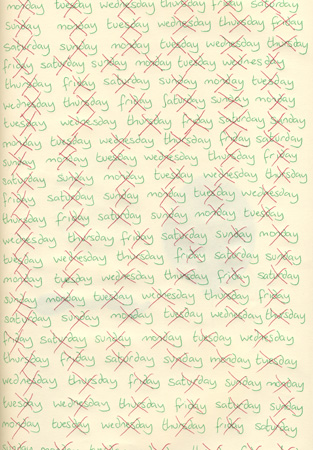 monday tuesday wednesday thursday friday saturday
sunday monday tuesday wednesday thursday friday
saturday sunday monday tuesday wednesday thursday
friday saturday sunday monday tuesday wednesday
thursday friday saturday sunday monday tuesday
wednesday thursday friday saturday sunday monday
tuesday wednesday thursday friday saturday sunday
monday tuesday wednesday thursday friday saturday
sunday monday tuesday wednesday thursday friday
saturday sunday monday tuesday wednesday thursday
friday saturday sunday monday tuesday wednesday
thursday friday saturday sunday monday tuesday
wednesday thursday friday saturday sunday monday
tuesday wednesday thursday friday saturday sunday
monday tuesday wednesday thursday friday saturday
sunday monday tuesday wednesday thursday friday
saturday sunday monday tuesday wednesday thursday
friday saturday sunday monday tuesday wednesday
thursday friday saturday sunday monday tuesday
wednesday thursday friday saturday sunday monday
tuesday wednesday thursday friday saturday sunday
monday tuesday wednesday thursday friday saturday